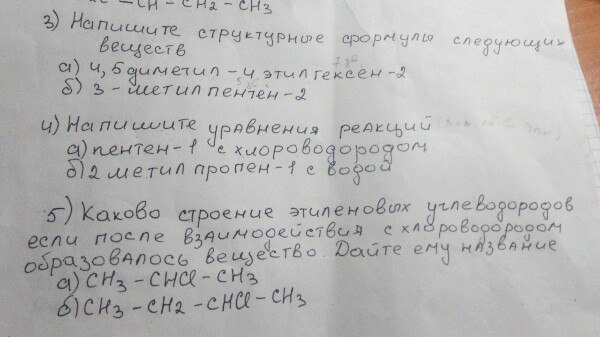 – CH – CH2 – CH3
3) Напишите структурные формулы следующих
веществ
а) 4,5 диметил – 4 этил гексен – 2
б) 3 – метил пентен – 2
4) Напишите уравнения реакций
а) пентен – 1 с хлороводородом
б) 2 метил пропен – 1 с водой
5) Каково строение этиленовых углеводородов
если после взаимодействия с хлороводородом
образовалось вещество. Дайте ему название
а) CH3 – CHCl – CH3
б) CH3 – CH2 – CHCl – CH3